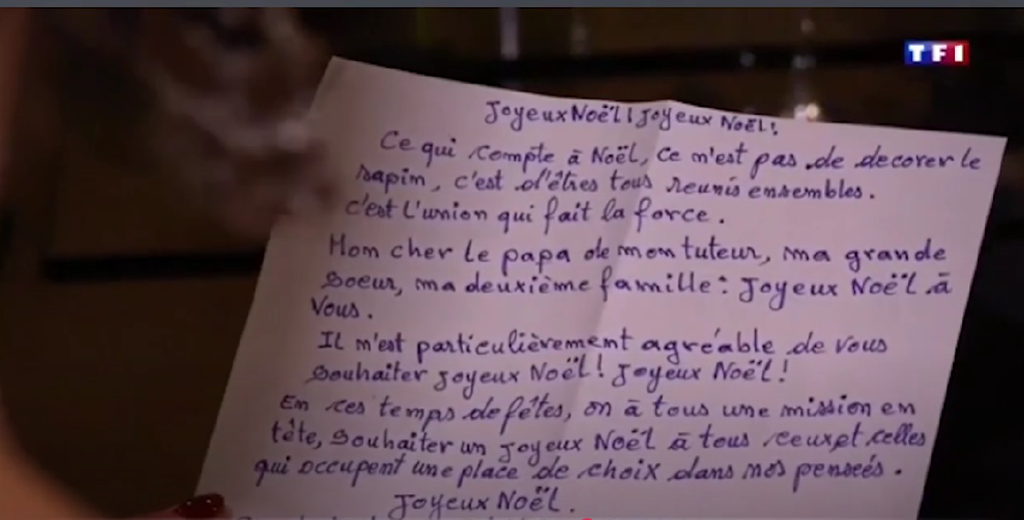 TF1
Joyeux Noël! Joyeux Noël!
Ce qui compte à Noël, ce n'est pas de decorer le
sapin, c'est d'êtres tous reunis ensembles.
c'est L'union qui fait la force.
Mom cher le papa de mon tuteur, ma grande
soeur, ma deuxième famille: Joyeux Noël à
Vous.
Il m'est particulièrement agréable de vous
souhaiter joyeux Noël! Joyeux Noël!
En ces temps de fêtes, on à tous une mission en
tête, souhaiter un joyeux Noël à tous ceux et celles
qui occupent une place de choix dans nos penseés.
Joyeux Noël.